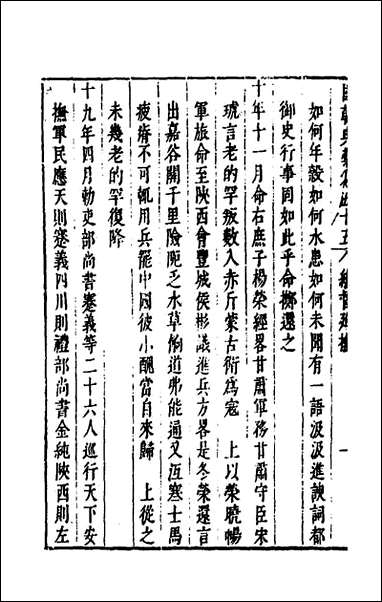 國朝典彙卷四十五 總督巡撫 一
如何年設如何水患如何未聞有一語汲汲進諛詞都
御史行事固如此乎命擲還之
十年十一月命右庶子楊榮經畧甘肅軍務甘肅守臣宋
琥言老的罕叛數入赤斤蒙古衛為寇 上以榮曉暢
軍旅命至陝西會豐城侯彬議進兵方畧是冬榮還言
出嘉谷關千里險阨乏水草餉道弗能通又冱寒士馬
疲瘠不可輒用兵罷中國彼小醜當自來歸 上從之
未幾老的罕復降
十九年四月勅吏部尚書蹇義等二十六人巡行天下安
撫軍民應天則蹇義四川則禮部尚書金純陝西則左